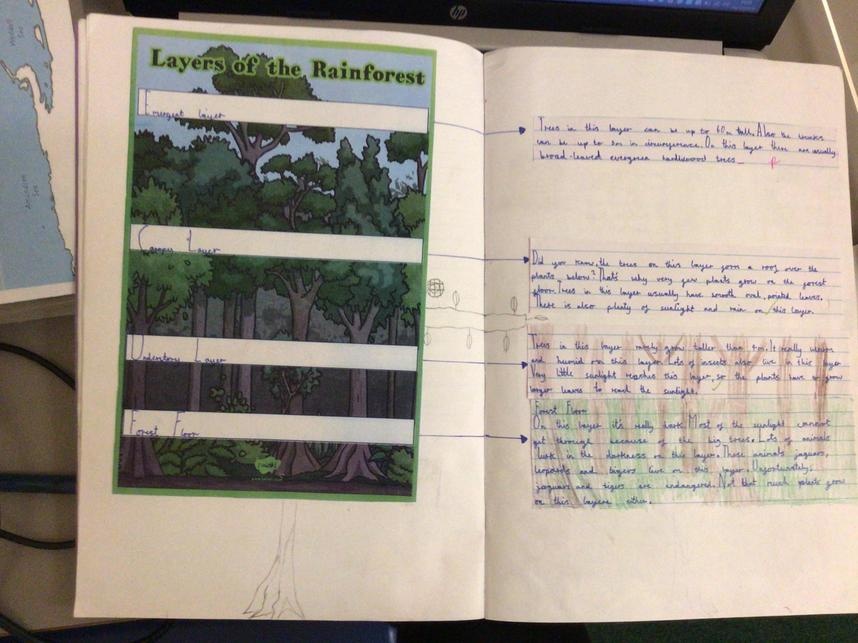 Layers of the Rainforest
Emergent layer
Canopy Layer
Understory Layer
Forest Floor
Trees in this layer can be up to 60m tall. Also the
can be up to 5m in On this layer there are usually
broad-leaved evergreen trees
Did you know, the trees on this layer form a roof over the
plants below? That's why very few plants grow on the forest
floor. Trees in this layer usually have smooth oval, pointed leaves.
There is also plenty of sunlight and rain on this layer.
Trees in this layer mostly grow taller than 4m. It really
and humid on this layer. Lots of insects also live in this layer
Very little sunlight reaches this layer, so the plants have to grow
larger leaves to reach the sunlight.
Forest Floor
On this layer it's really dark. Most of the sunlight cannot
get through because of the big trees. Lots of animals
lurk in the darkness on this layer. These animals jaguars,
leopards and tigers live on this layer. Unfortunately,
jaguars and tigers are endangered. Not that much plants grow
on this layer either.
hp